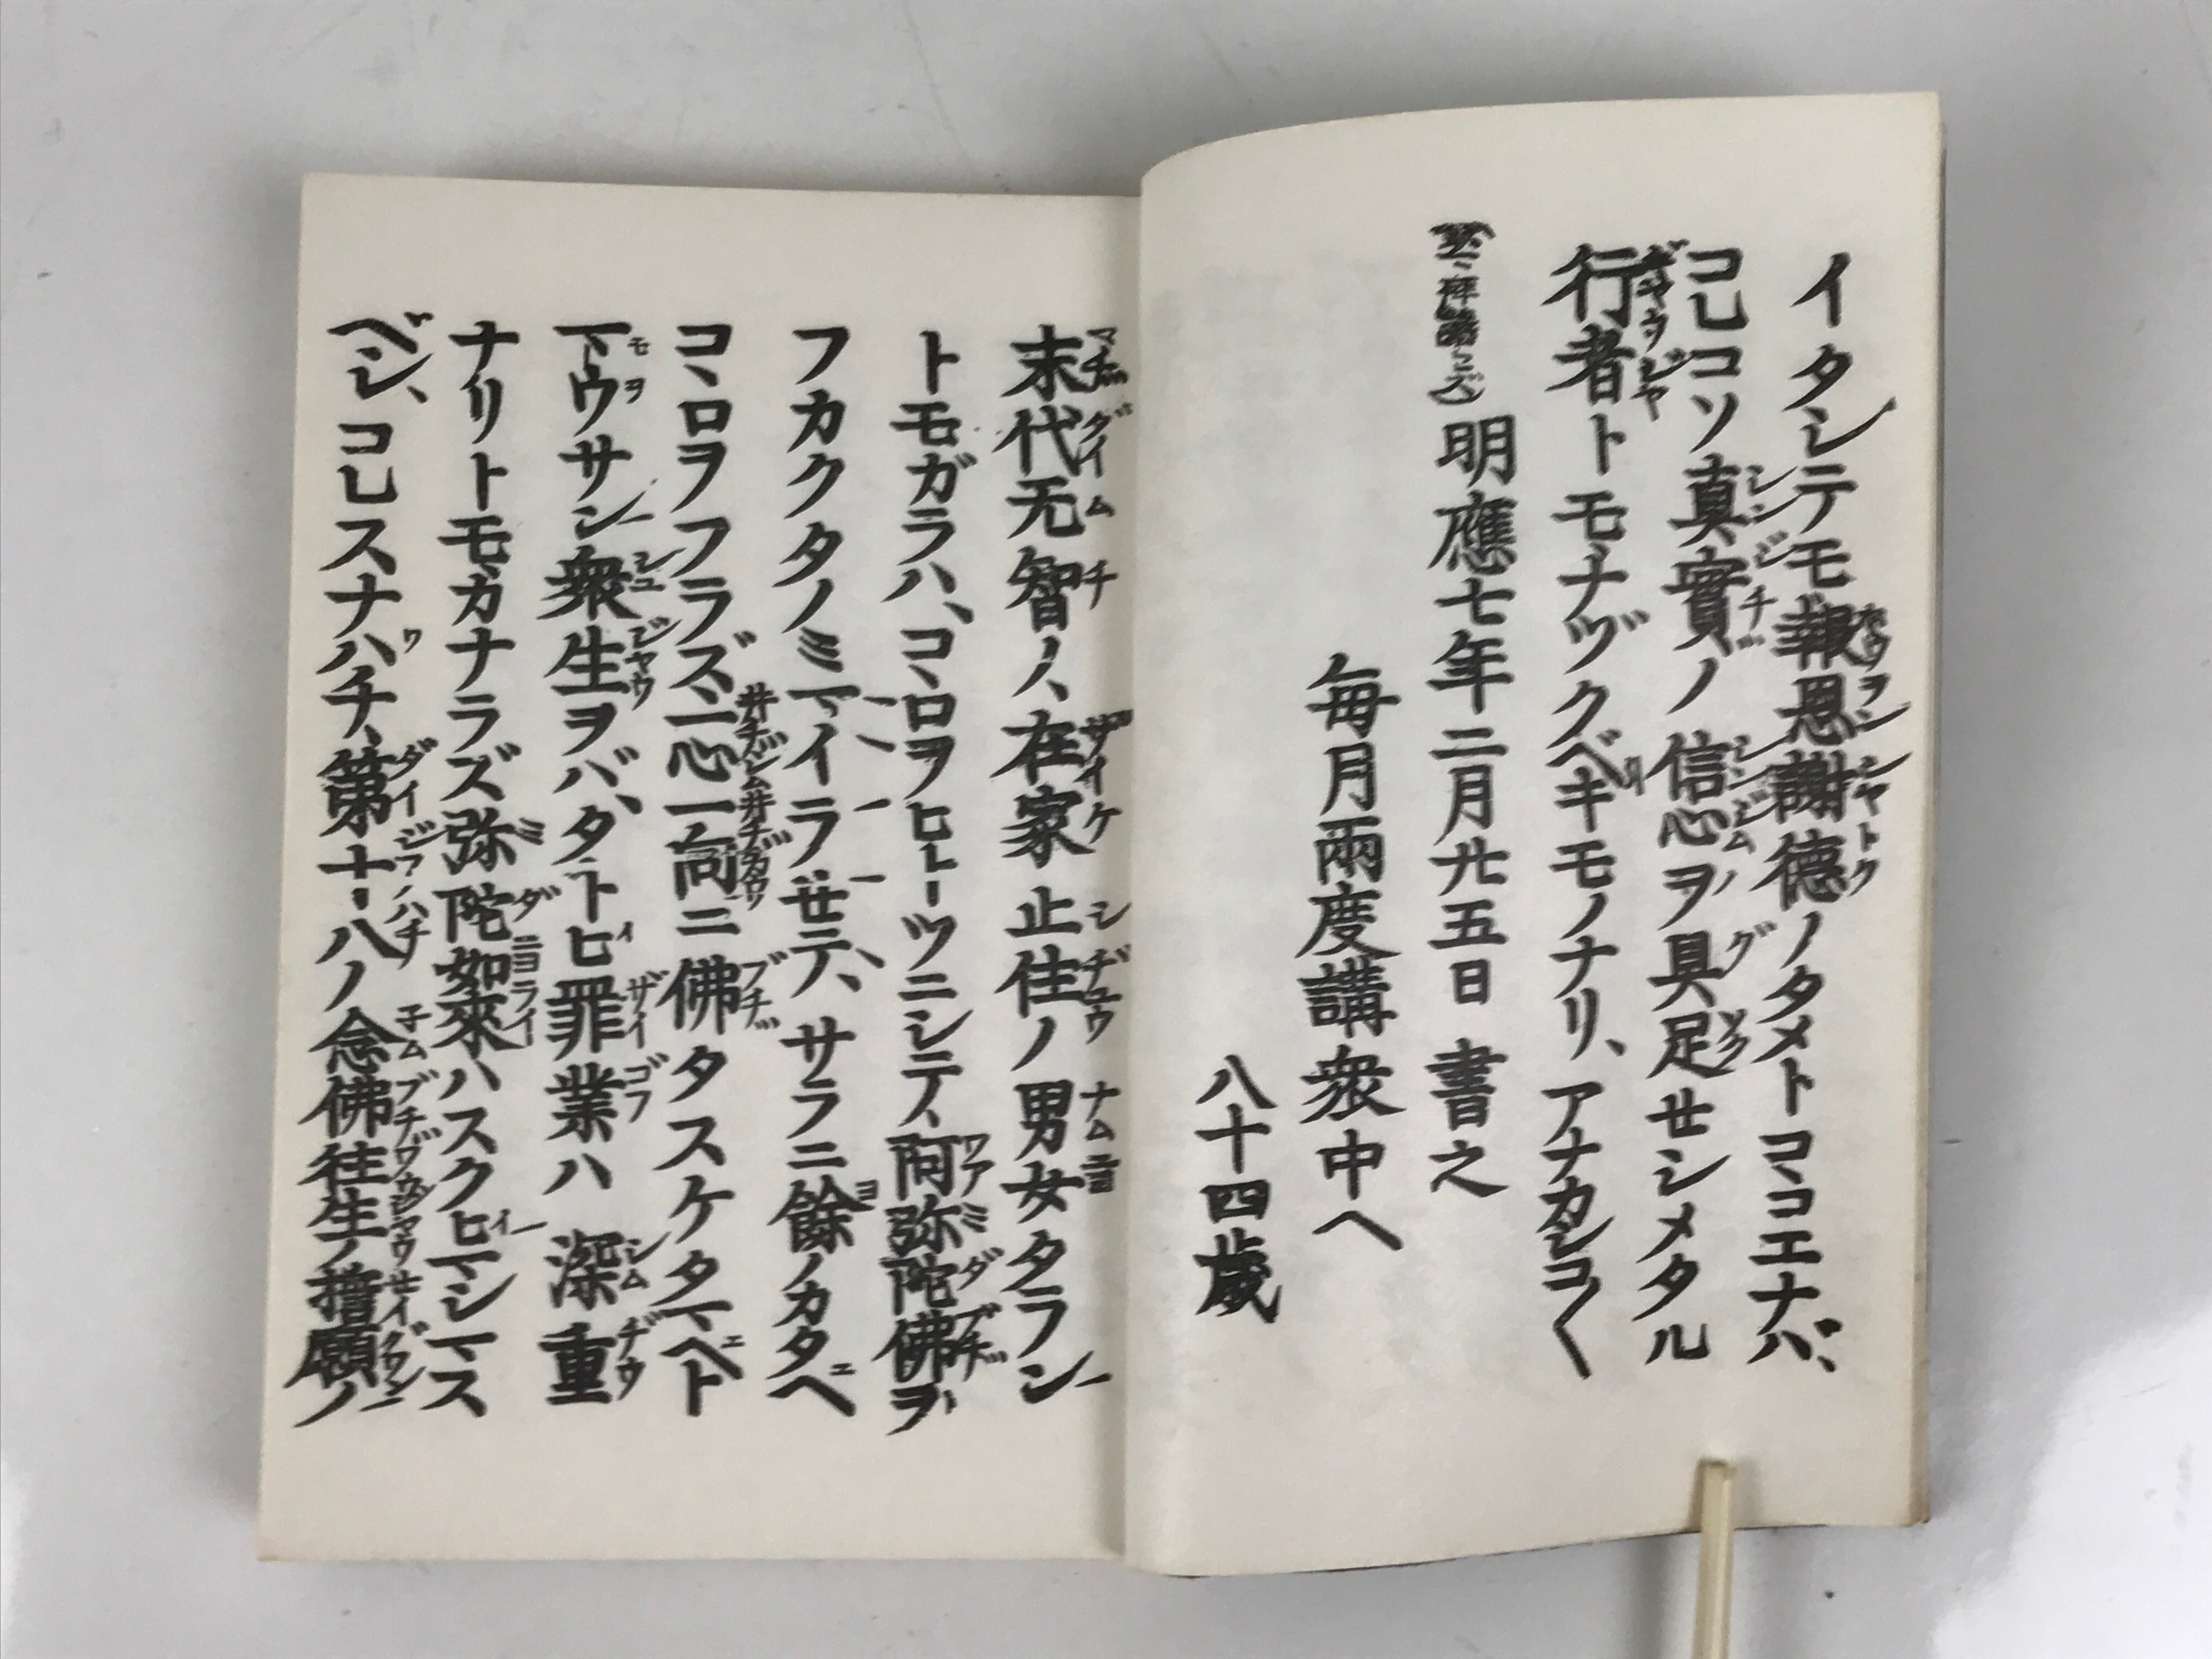 イタシテモ報恩謝德ノタメトコヽロエナバ、
コレコソ真實ノ信心ヲ具足セシメタル
行者トモナヅクベキモノナリ、アナカシコ〱
明應七年二月廿五日書之
毎月兩度講衆中へ
八十四歳
末代无智ノ、在家止住ノ男女タラン
トモガラハ、コヽロヲヒトツニシテ、阿弥陀佛ヲ
フカクタノミマイラセテ、サラニ餘ノカタヘ
コヽロヲフラズ、一心一向ニ佛タスケタマヘト
マウサン衆生ヲバ、タトヒ罪業ハ深重
ナリトモカナラズ弥陀如來ハスクヒマシマス
ベシ、コレスナハチ、第十八ノ念佛往生ノ誓願ノ